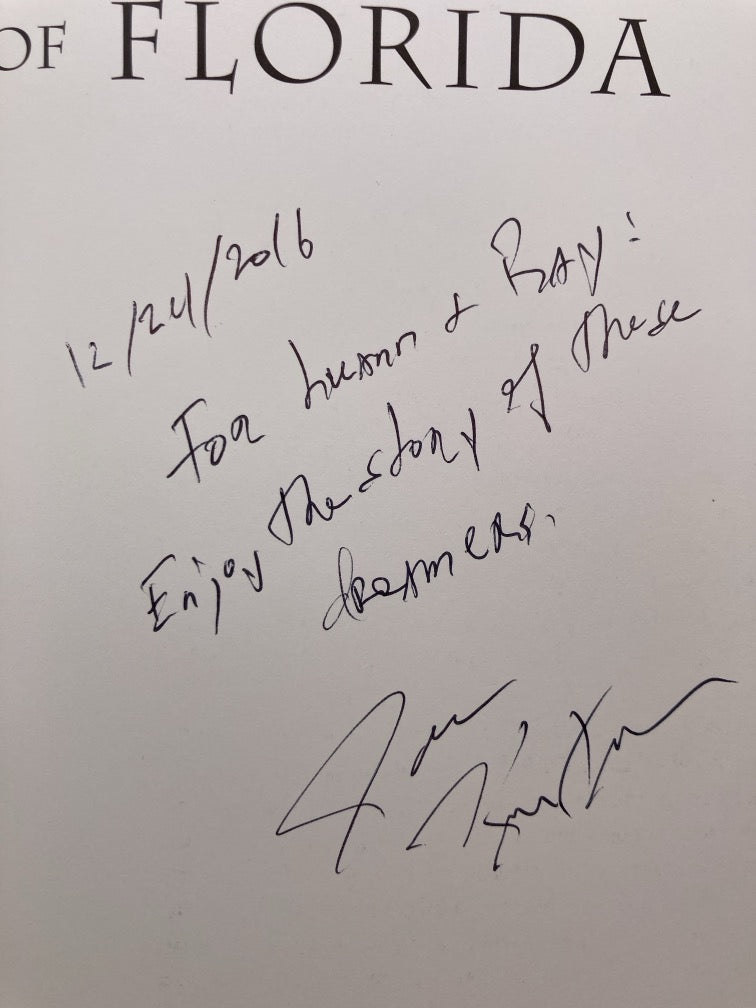 OF FLORIDA
12/24/2016
For Luann & Ray:
Enjoy the story of these
dreamers.